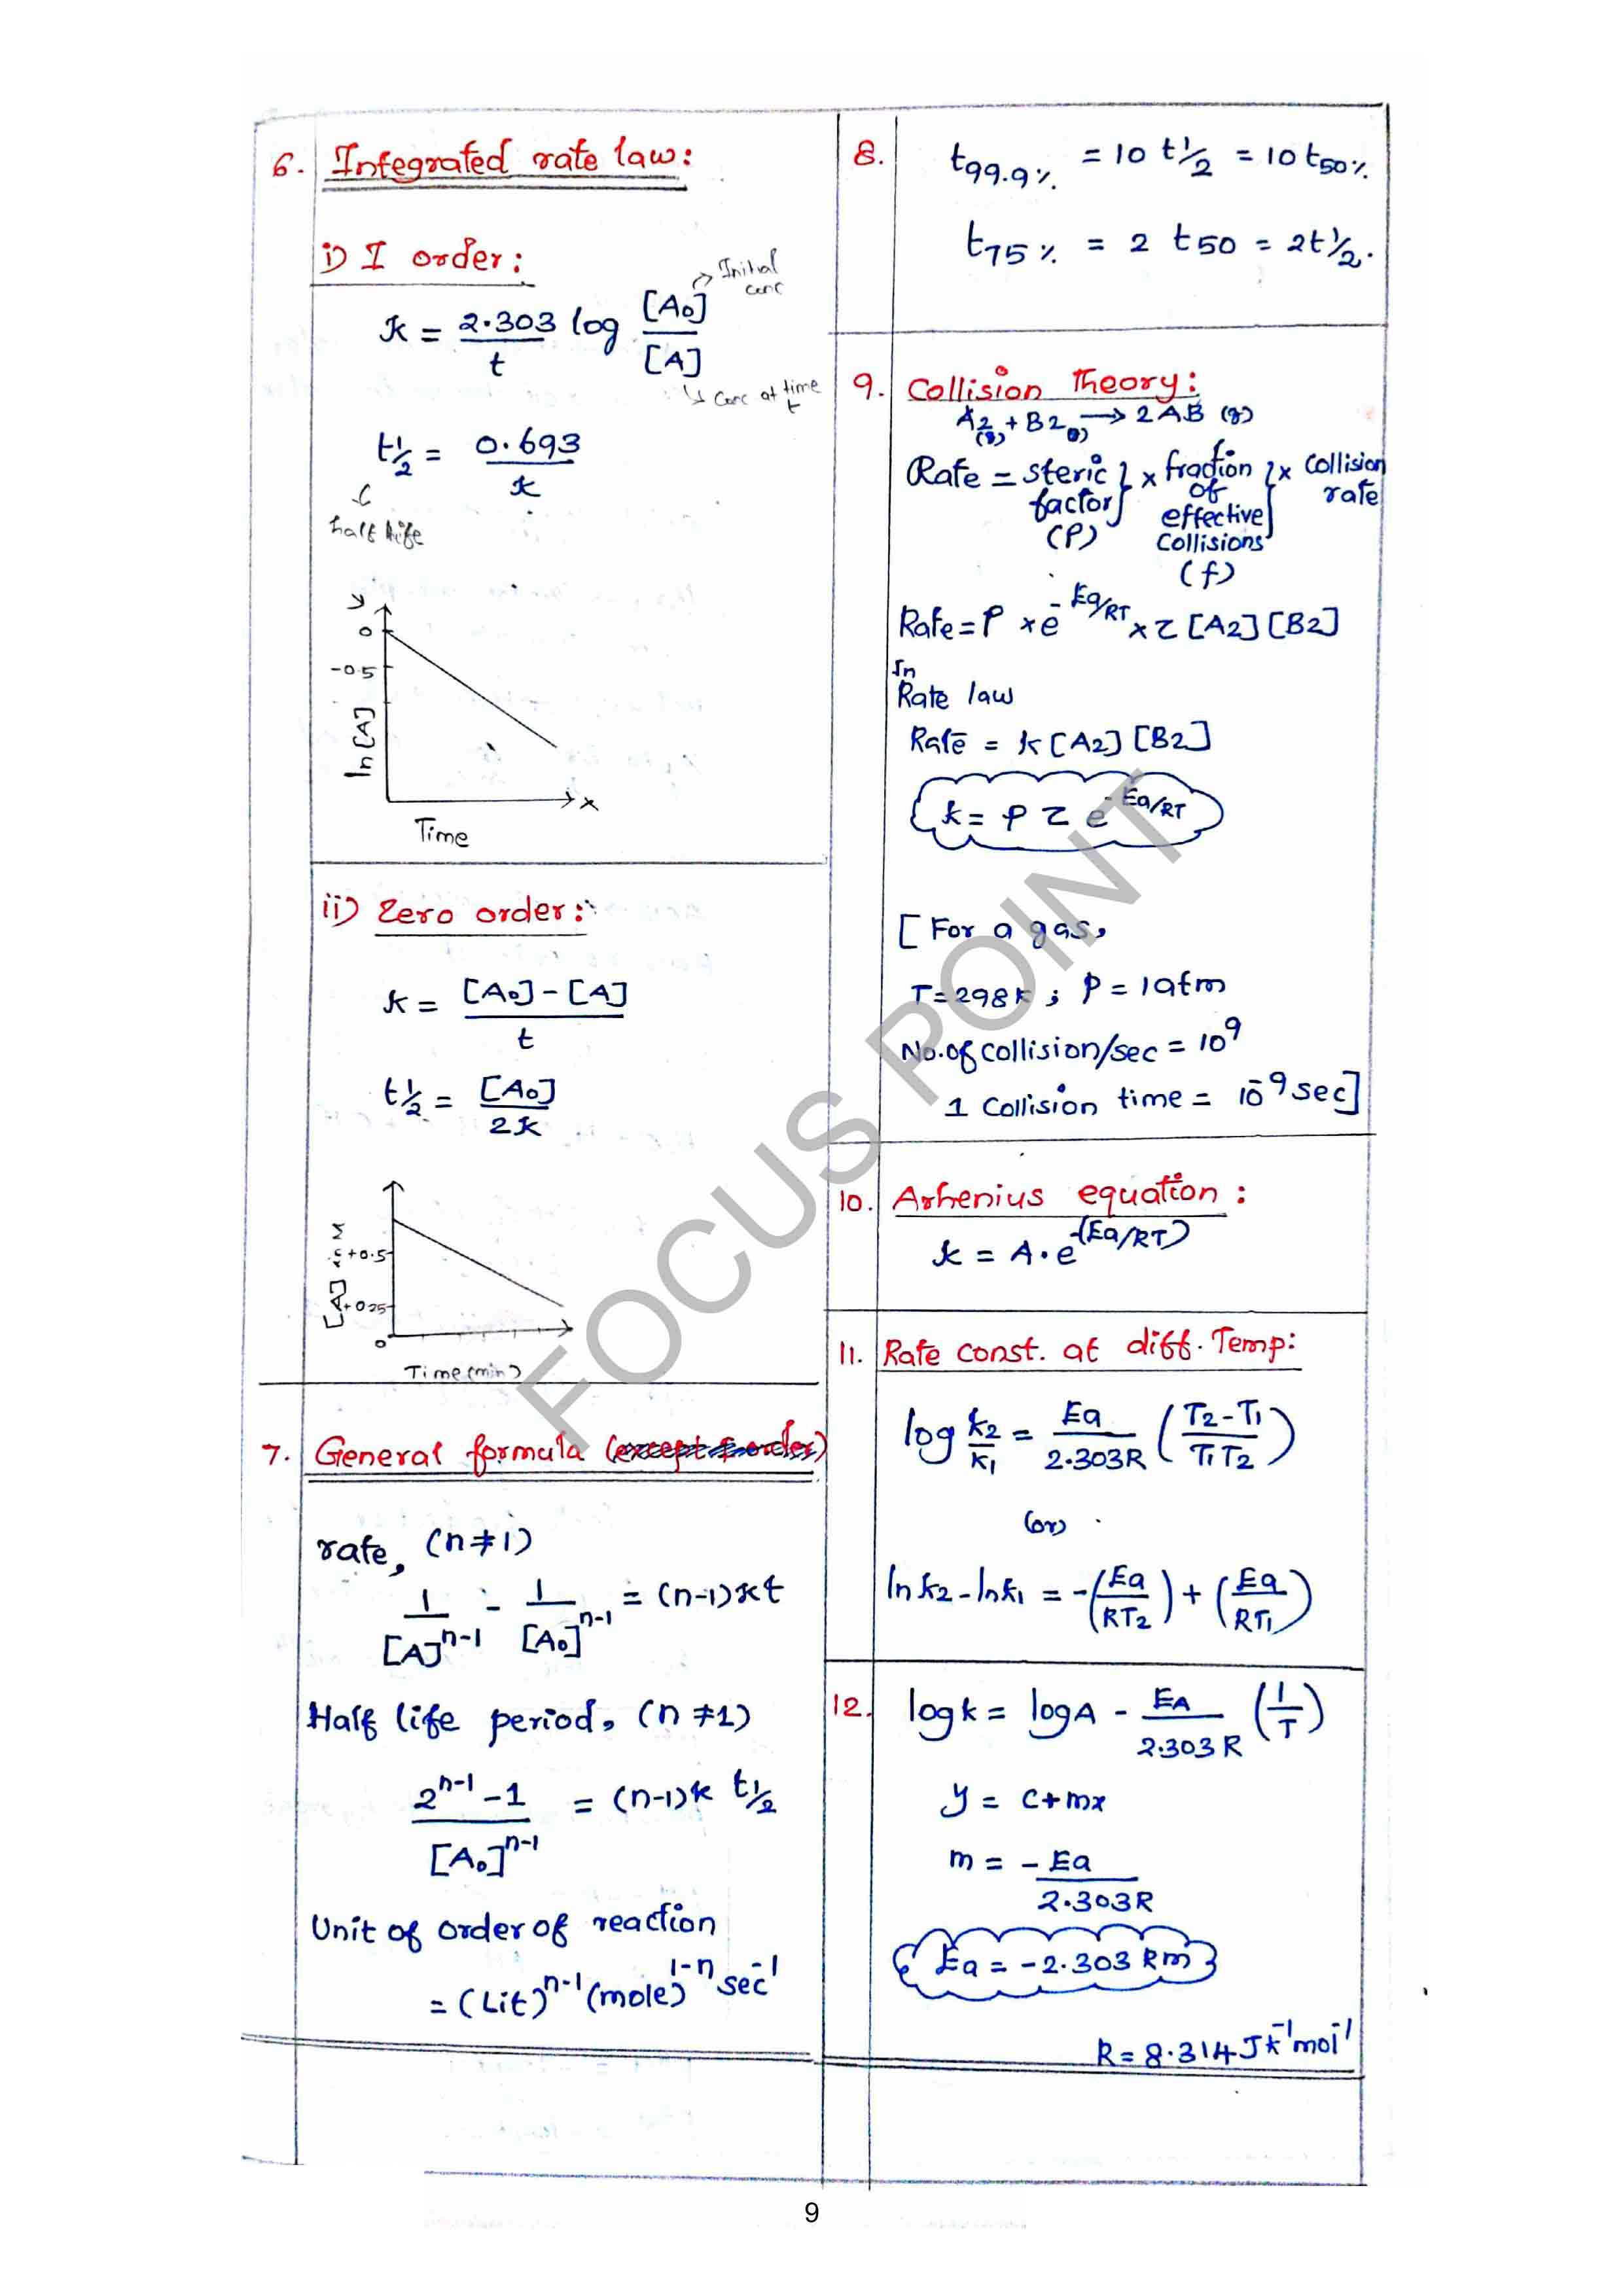 6. Integrated rate law:
i) I order:
k = 2.303/t log [A₀]/[A]
→ Initial conc
↳ conc at time t
t½ = 0.693/k
↓
half life
y
0
-0.5
ln [A]
x
Time
ii) Zero order:
k = [A₀] - [A] / t
t½ = [A₀] / 2k
+0.5
+0.25
0
[A] in M
Time (min)
7. General formula (except I order)
rate, (n ≠ 1)
1/[A]ⁿ⁻¹ - 1/[A₀]ⁿ⁻¹ = (n-1)kt
Half life period, (n ≠ 1)
2ⁿ⁻¹ - 1 / [A₀]ⁿ⁻¹ = (n-1)k t½
Unit of order of reaction
= (Lit)ⁿ⁻¹ (mole)¹⁻ⁿ sec⁻¹
8. t99.9% = 10 t½ = 10 t50%
t75% = 2 t50 = 2t½.
9. Collision Theory:
A2(g) + B2(g) → 2AB (g)
Rate = steric factor (P) } × fraction of effective Collisions (f) } × Collision rate
Rate = P × e^-Ea/RT × Z [A2] [B2]
In
Rate law
Rate = k [A2] [B2]
k = P Z e^-Ea/RT
[ For a gas,
T = 298 K ; P = 1 atm
No. of collision/sec = 10⁹
1 Collision time = 10⁻⁹ sec]
10. Arhenius equation :
k = A. e^-(Ea/RT)
11. Rate const. at diff. Temp:
log k2/k1 = Ea/2.303R (T2 - T1 / T1 T2)
(or)
ln k2 - ln k1 = -(Ea/RT2) + (Ea/RT1)
12. log k = log A - EA/2.303 R (1/T)
y = c + mx
m = - Ea/2.303R
Ea = -2.303 Rm
R = 8.314 J K⁻¹ mol⁻¹
FOCUS POINT
9